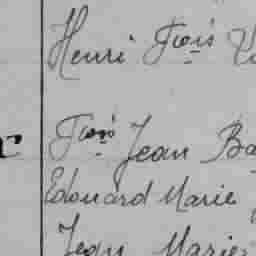 Henri Frois
Frois Jean Ba
Edouard Marie
Jean Marie